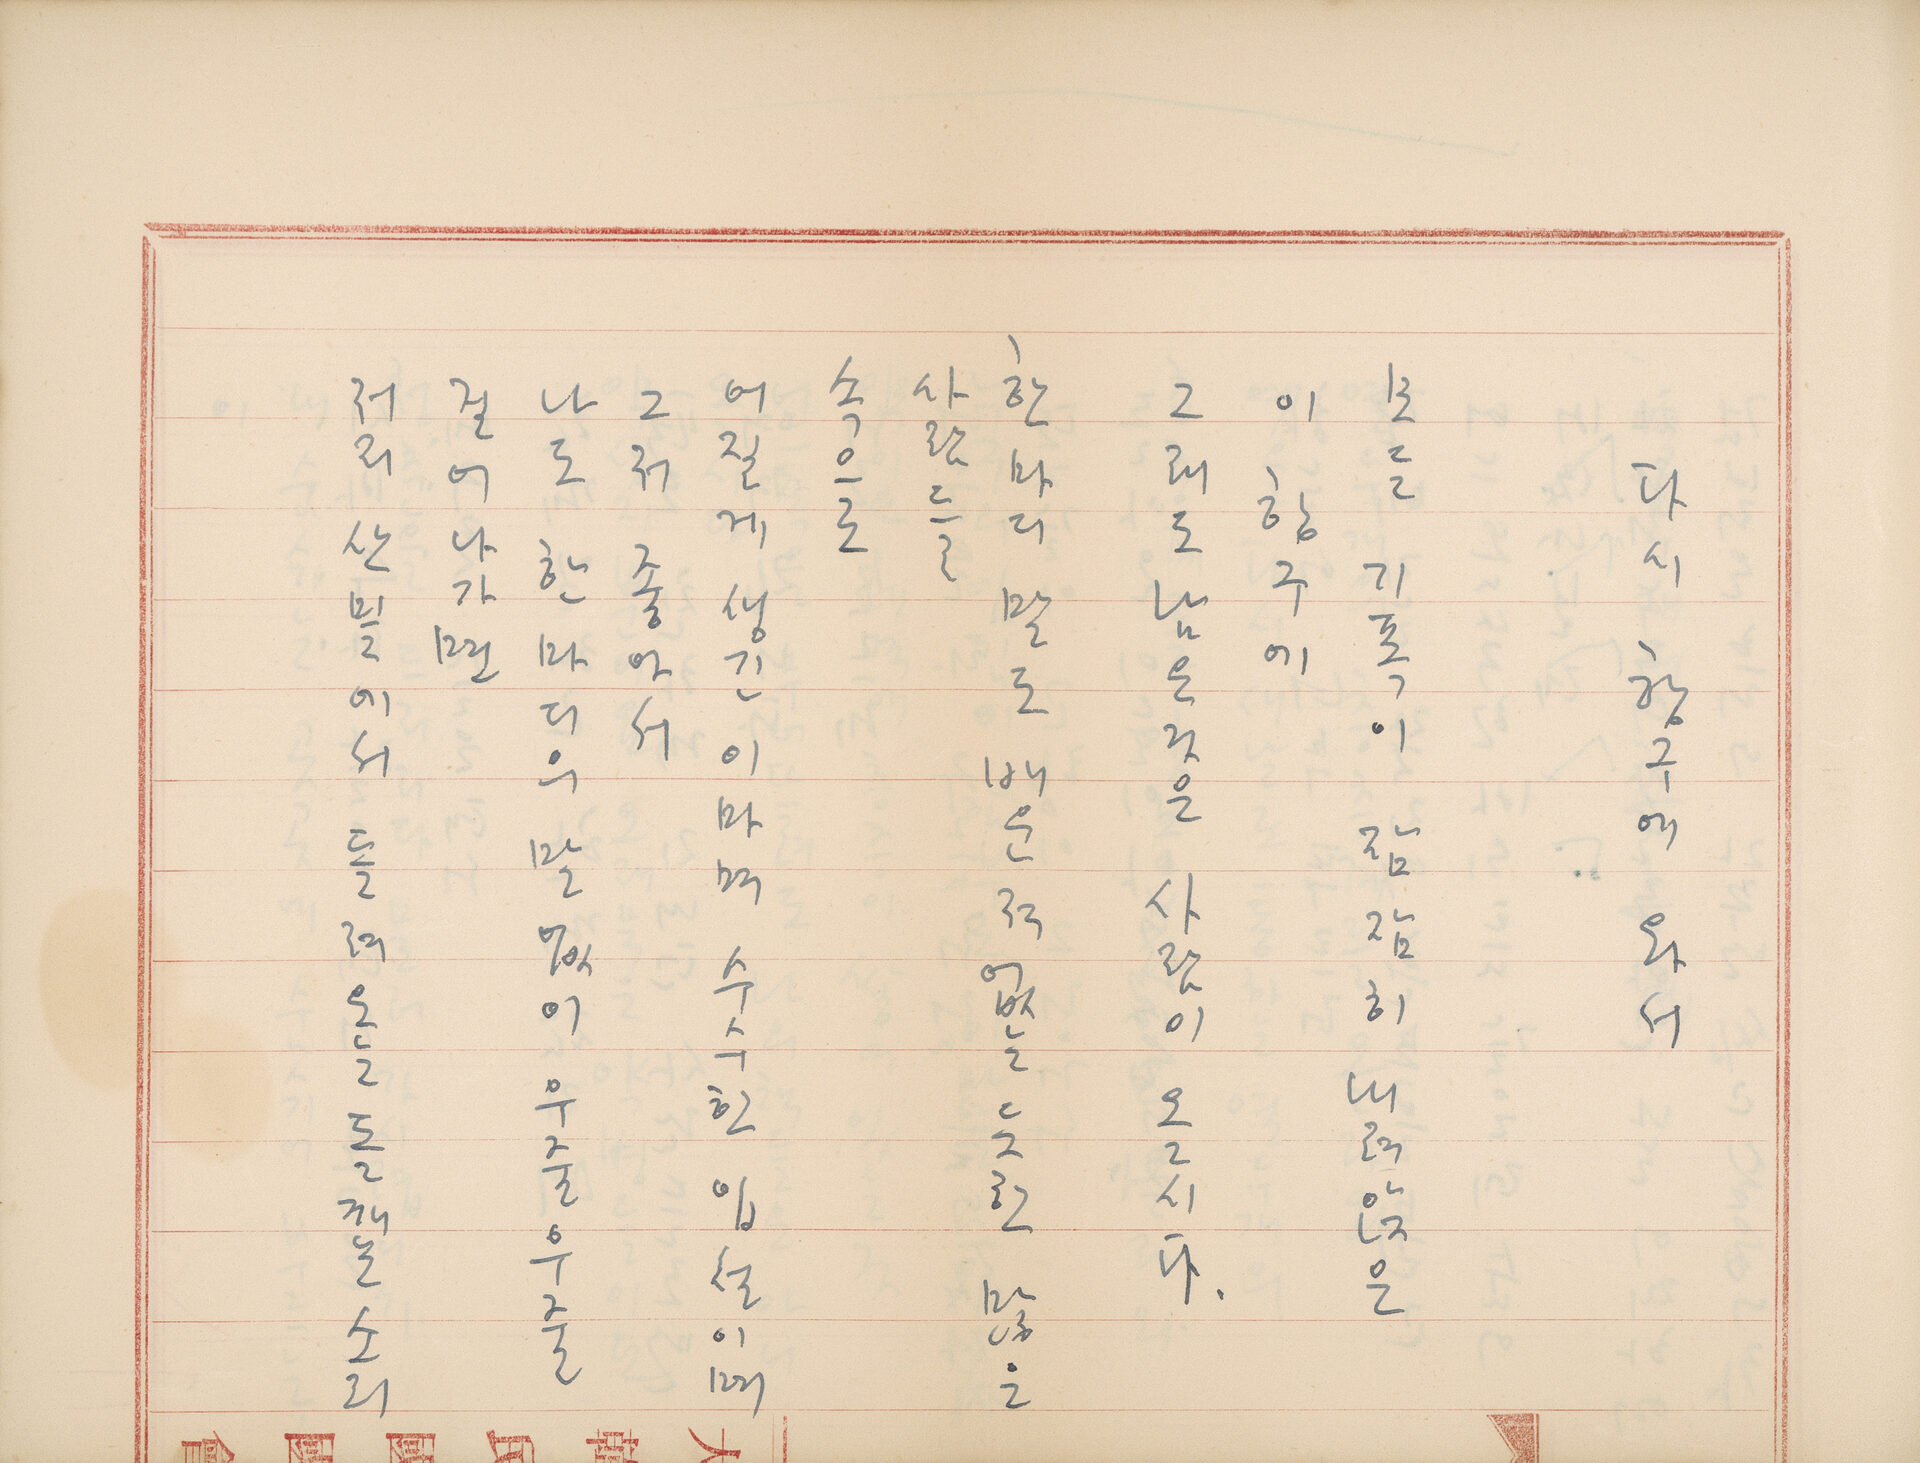 다시 항구에 와서
모든 기폭이 잠잠히 내려앉은
이 항구에
그래도 남은것은 사람이 올시다.
한마디 말도 배운적없는듯한 많은
사람들
속으로
어질게 생긴 이마며 수수한 입설이며
그저 좋아서
나도 한마디의 말없이 우줄우줄
걸어나가면
저리 산밑에서 들려오는돌깨는소리
大韓民國國會